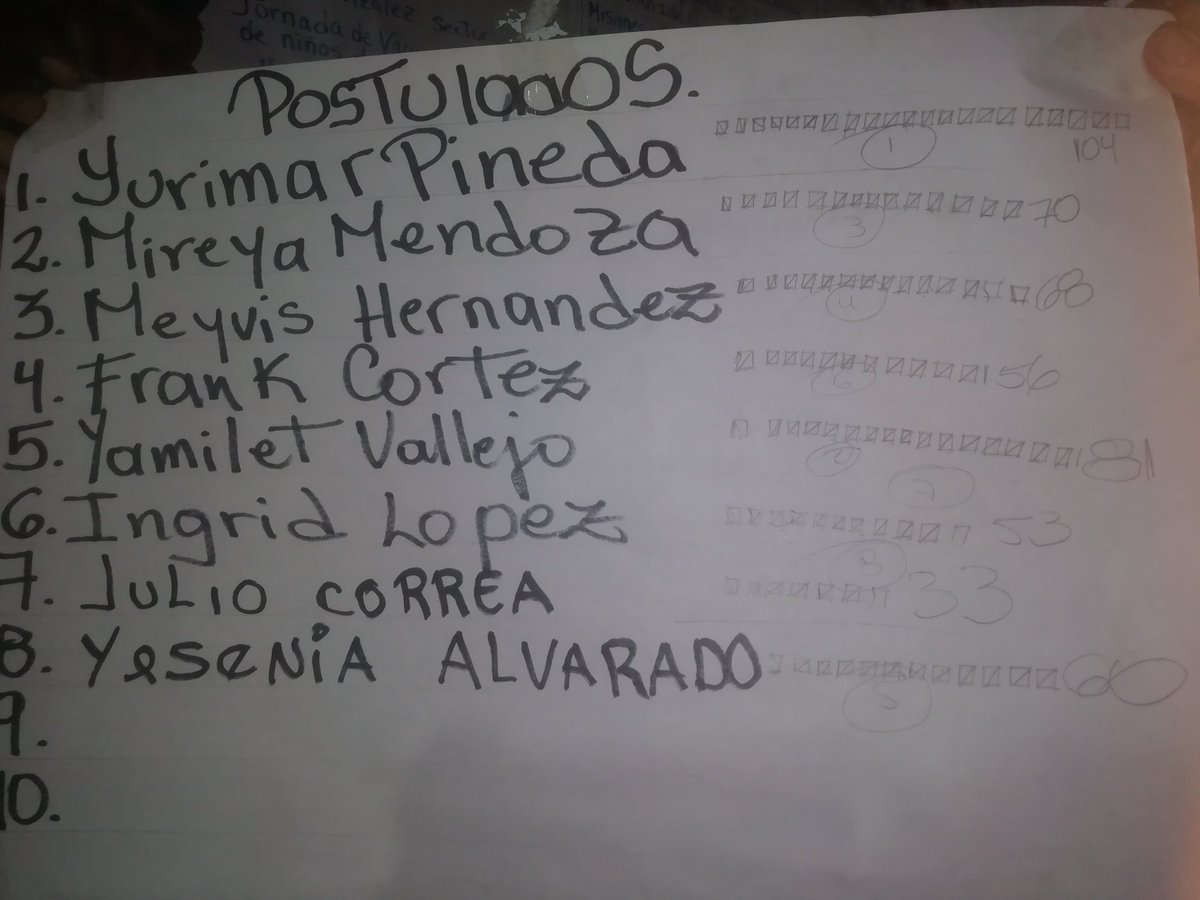 Jornada de
de niños
Misiones
POSTULADOS.
1. Yurimar Pineda 1 104
2. Mireya Mendoza 3 70
3. Meyvis Hernandez 4 68
4. Frank Cortez 6 56
5. Yamilet Vallejo 81
6. Ingrid Lopez 7 53
7. JULIO CORREA 8 33
8. YESENIA ALVARADO 5 60
9.
10.